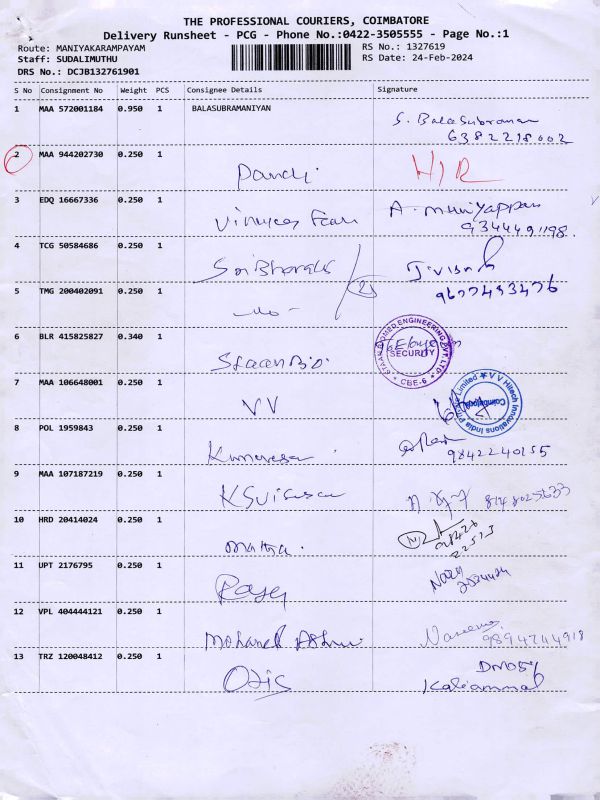 THE PROFESSIONAL COURIERS, COIMBATORE
Delivery Runsheet - PCG - Phone No.:0422-3505555 - Page No.:1
Route: MANIYAKARAMPAYAM
RS No.: 1327619
Staff: SUDALIMUTHU
RS Date: 24-Feb-2024
DRS No.: DCJB132761901
S No Consignment No Weight PCS Consignee Details Signature
1 MAA 572001184 0.950 1 BALASUBRAMANIYAN S. Balasubramanian
6382218002
2 MAA 944202730 0.250 1 Pandi. H/R
3 EDQ 16667336 0.250 1 A. Muniyappan
9344491198.
4 TCG 50584686 0.250 1 Sri Bharath
9677493476
5 TMG 200402091 0.250 1
6 BLR 415825827 0.340 1 Staan Bio. SECURITY
CBE-6
7 MAA 106648001 0.250 1 VV V V Hitech Innovations India Private Limited
Coimbatore
8 POL 1959843 0.250 1
9842240155
9 MAA 107187219 0.250 1
10 HRD 20414024 0.250 1
11 UPT 2176795 0.250 1
12 VPL 404444121 0.250 1 Naseema
9894744918
13 TRZ 120048412 0.250 1 Otis
Kaliammal